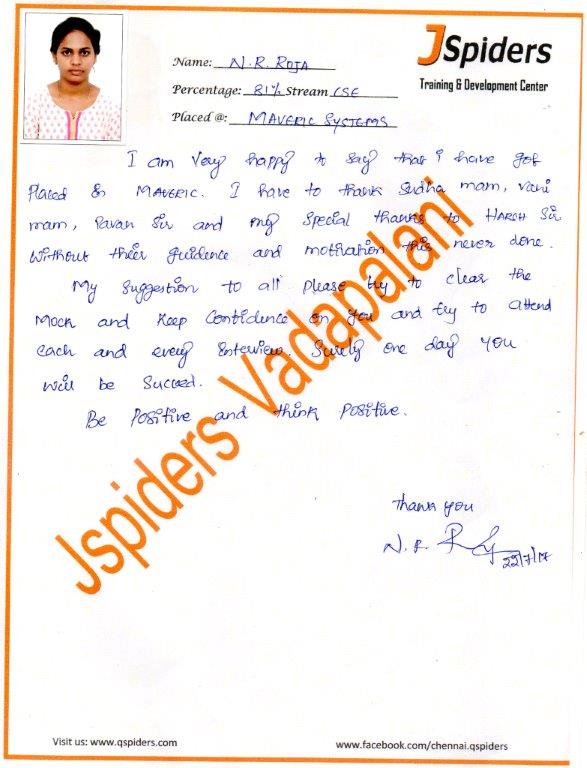 JSpiders
Training & Development Center
Name: N.R. ROJA
Percentage: 81% Stream CSE
Placed @: MAVERIC SYSTEMS
I am very happy to say that I have got
placed in MAVERIC. I have to thank Sudha mam, Vani
mam, Pavan Sir and my special thanks to HARISH Sir
without their guidence and motivation this never done.
My suggestion to all please try to clear the
mock and keep confidence on you and try to attend
each and every interview. Surely one day you
will be succeed.
Be positive and think positive.
Jspiders Vadapalani
Thank you
N.R.
22/7/17
Visit us: www.qspiders.com
www.facebook.com/chennai.qspiders